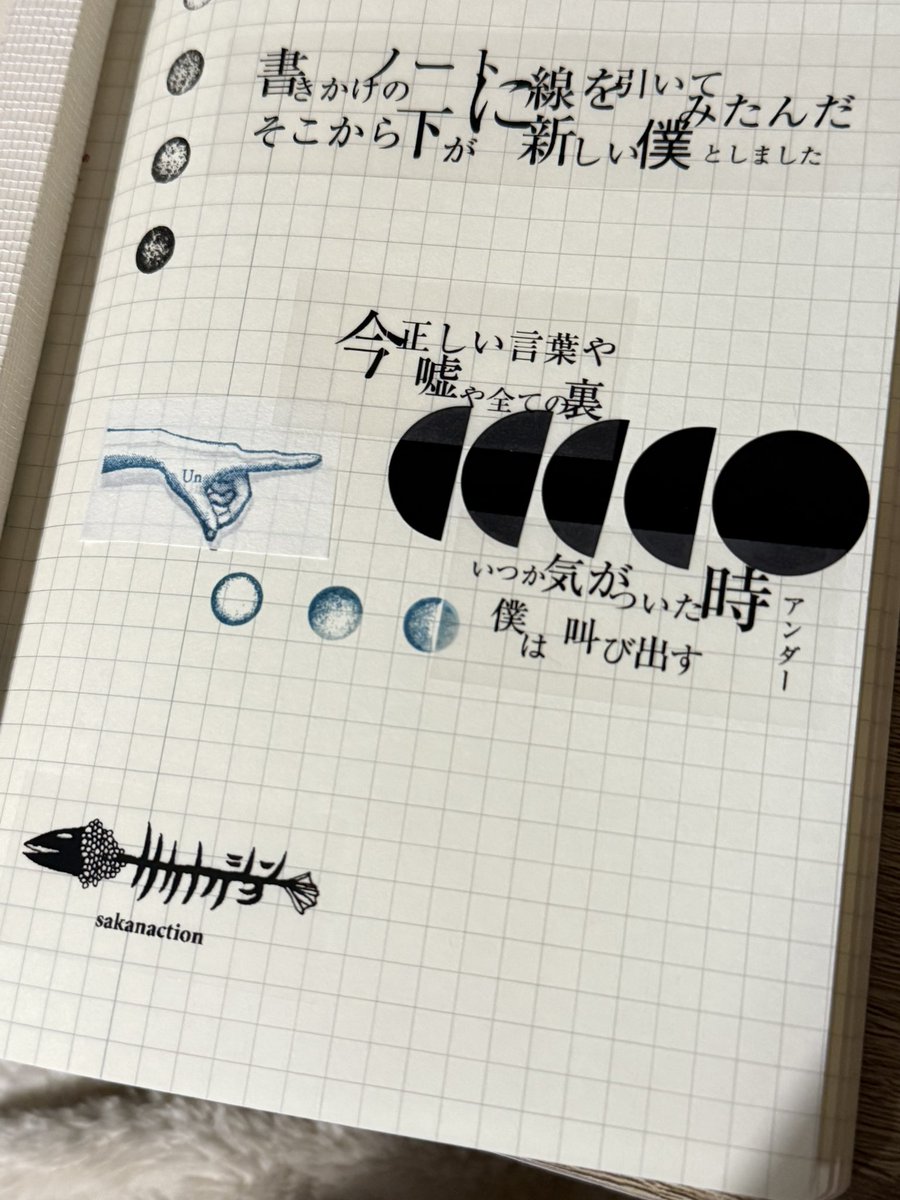 書きかけのノートに線を引いてみたんだ
そこから下が新しい僕としました
今正しい言葉や
嘘や全ての裏
Un
いつか気がついた時
僕は叫び出す
アンダー
sakanaction